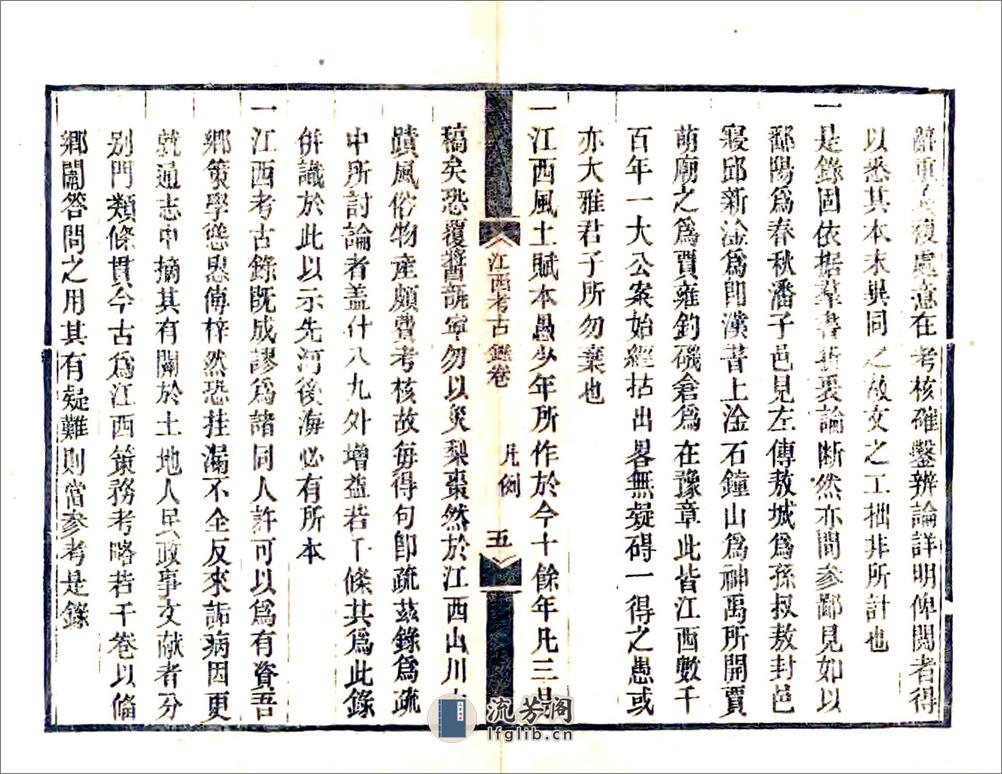 考核確鑿辨論詳明俾閱者得
以悉其本末異同之故文之工拙非所計也
一是錄固依据羣書折衷論断然亦間参鄙見如以
鄱陽爲春秋潘子邑見左傳敖城爲孫叔敖封邑
寝邱新淦爲卽漢書上淦石鐘山爲神禹所開賈
萌廟之爲賈雍釣磯倉爲在豫章此皆江西數千
百年一大公案始經拈出畧無疑碍一得之愚或
亦大雅君子所勿棄也
一江西風土賦本愚少年所作於今十餘年凡三易
稿矣恐覆醬瓿寧勿以災梨棗然於江西山川
蹟風俗物産頗費考核故毎得句卽疏兹錄爲疏
中所討論者盖什八九外增益若干條其爲此錄
併識於此以示先河後海必有所本
一江西考古錄旣成謬爲諸同人許可以爲有資吾
鄉策學慫恿傅梓然恐挂漏不全反來詬病因更
就通志中摘其有關於土地人民政事文献者分
别門類條貫今古爲江西策務考略若干卷以偹
鄉闈答問之用其有疑難則當参考是錄
江西考古錄卷
凡例
五
流芳阁
lfglib.cn